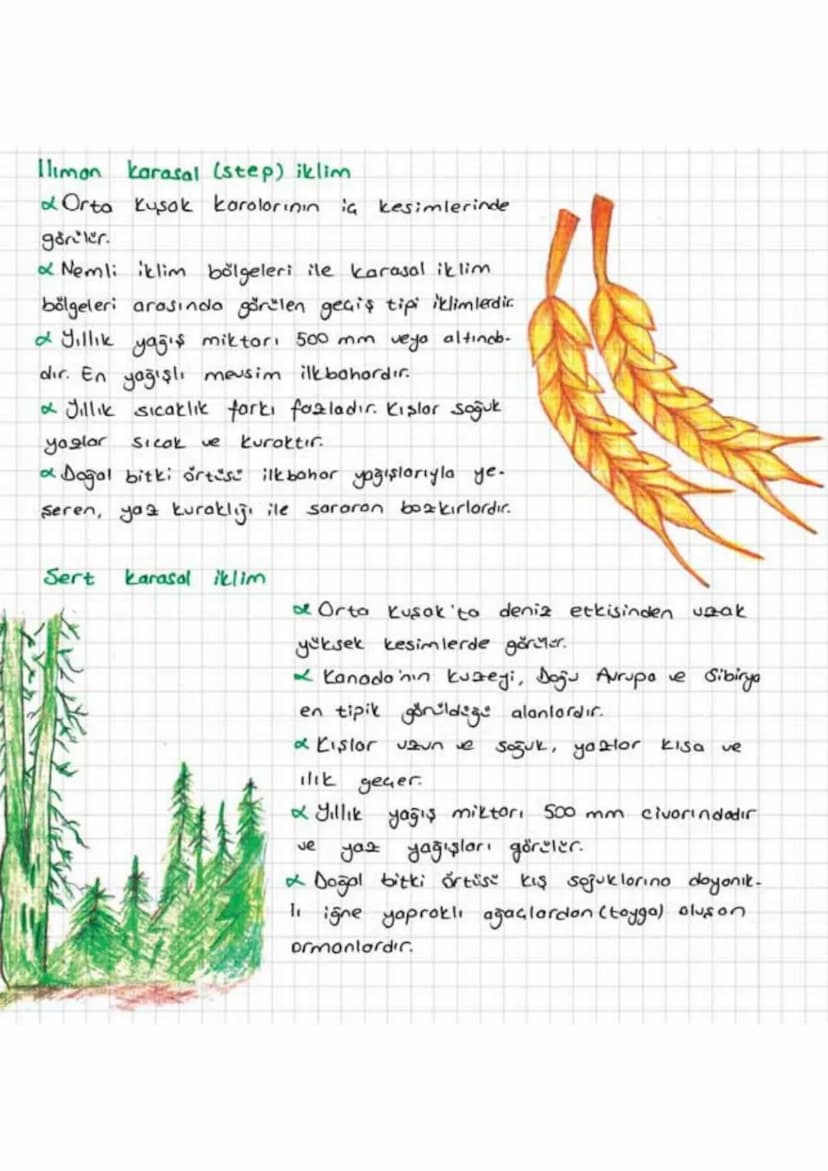 Ilıman karasal (step) iklim
α Orta kuşak karalarının iç kesimlerinde
görülür.
α Nemli iklim bölgeleri ile karasal iklim
bölgeleri arasında görülen geçiş tipi iklimlerdir.
α Yıllık yağış miktarı 500 mm veya altında-
dır. En yağışlı mevsim ilkbahardır.
α Yıllık sıcaklık farkı fazladır. Kışlar soğuk
yazlar sıcak ve kuraktır.
α Doğal bitki örtüsü ilkbahar yağışlarıyla ye-
şeren, yaz kuraklığı ile sararan bozkırlardır.
Sert karasal iklim
α Orta kuşak'ta deniz etkisinden uzak
yüksek kesimlerde görülür.
α Kanada'nın kuzeyi, Doğu Avrupa ve Sibirya
en tipik görüldüğü alanlardır.
α Kışlar uzun ve soğuk, yazlar kısa ve
ılık geçer.
α Yıllık yağış miktarı 500 mm civarındadır
ve yaz yağışları görülür.
α Doğal bitki örtüsü kış soğuklarına dayanık-
lı iğne yapraklı ağaçlardan (tayga) oluşan
ormanlardır.